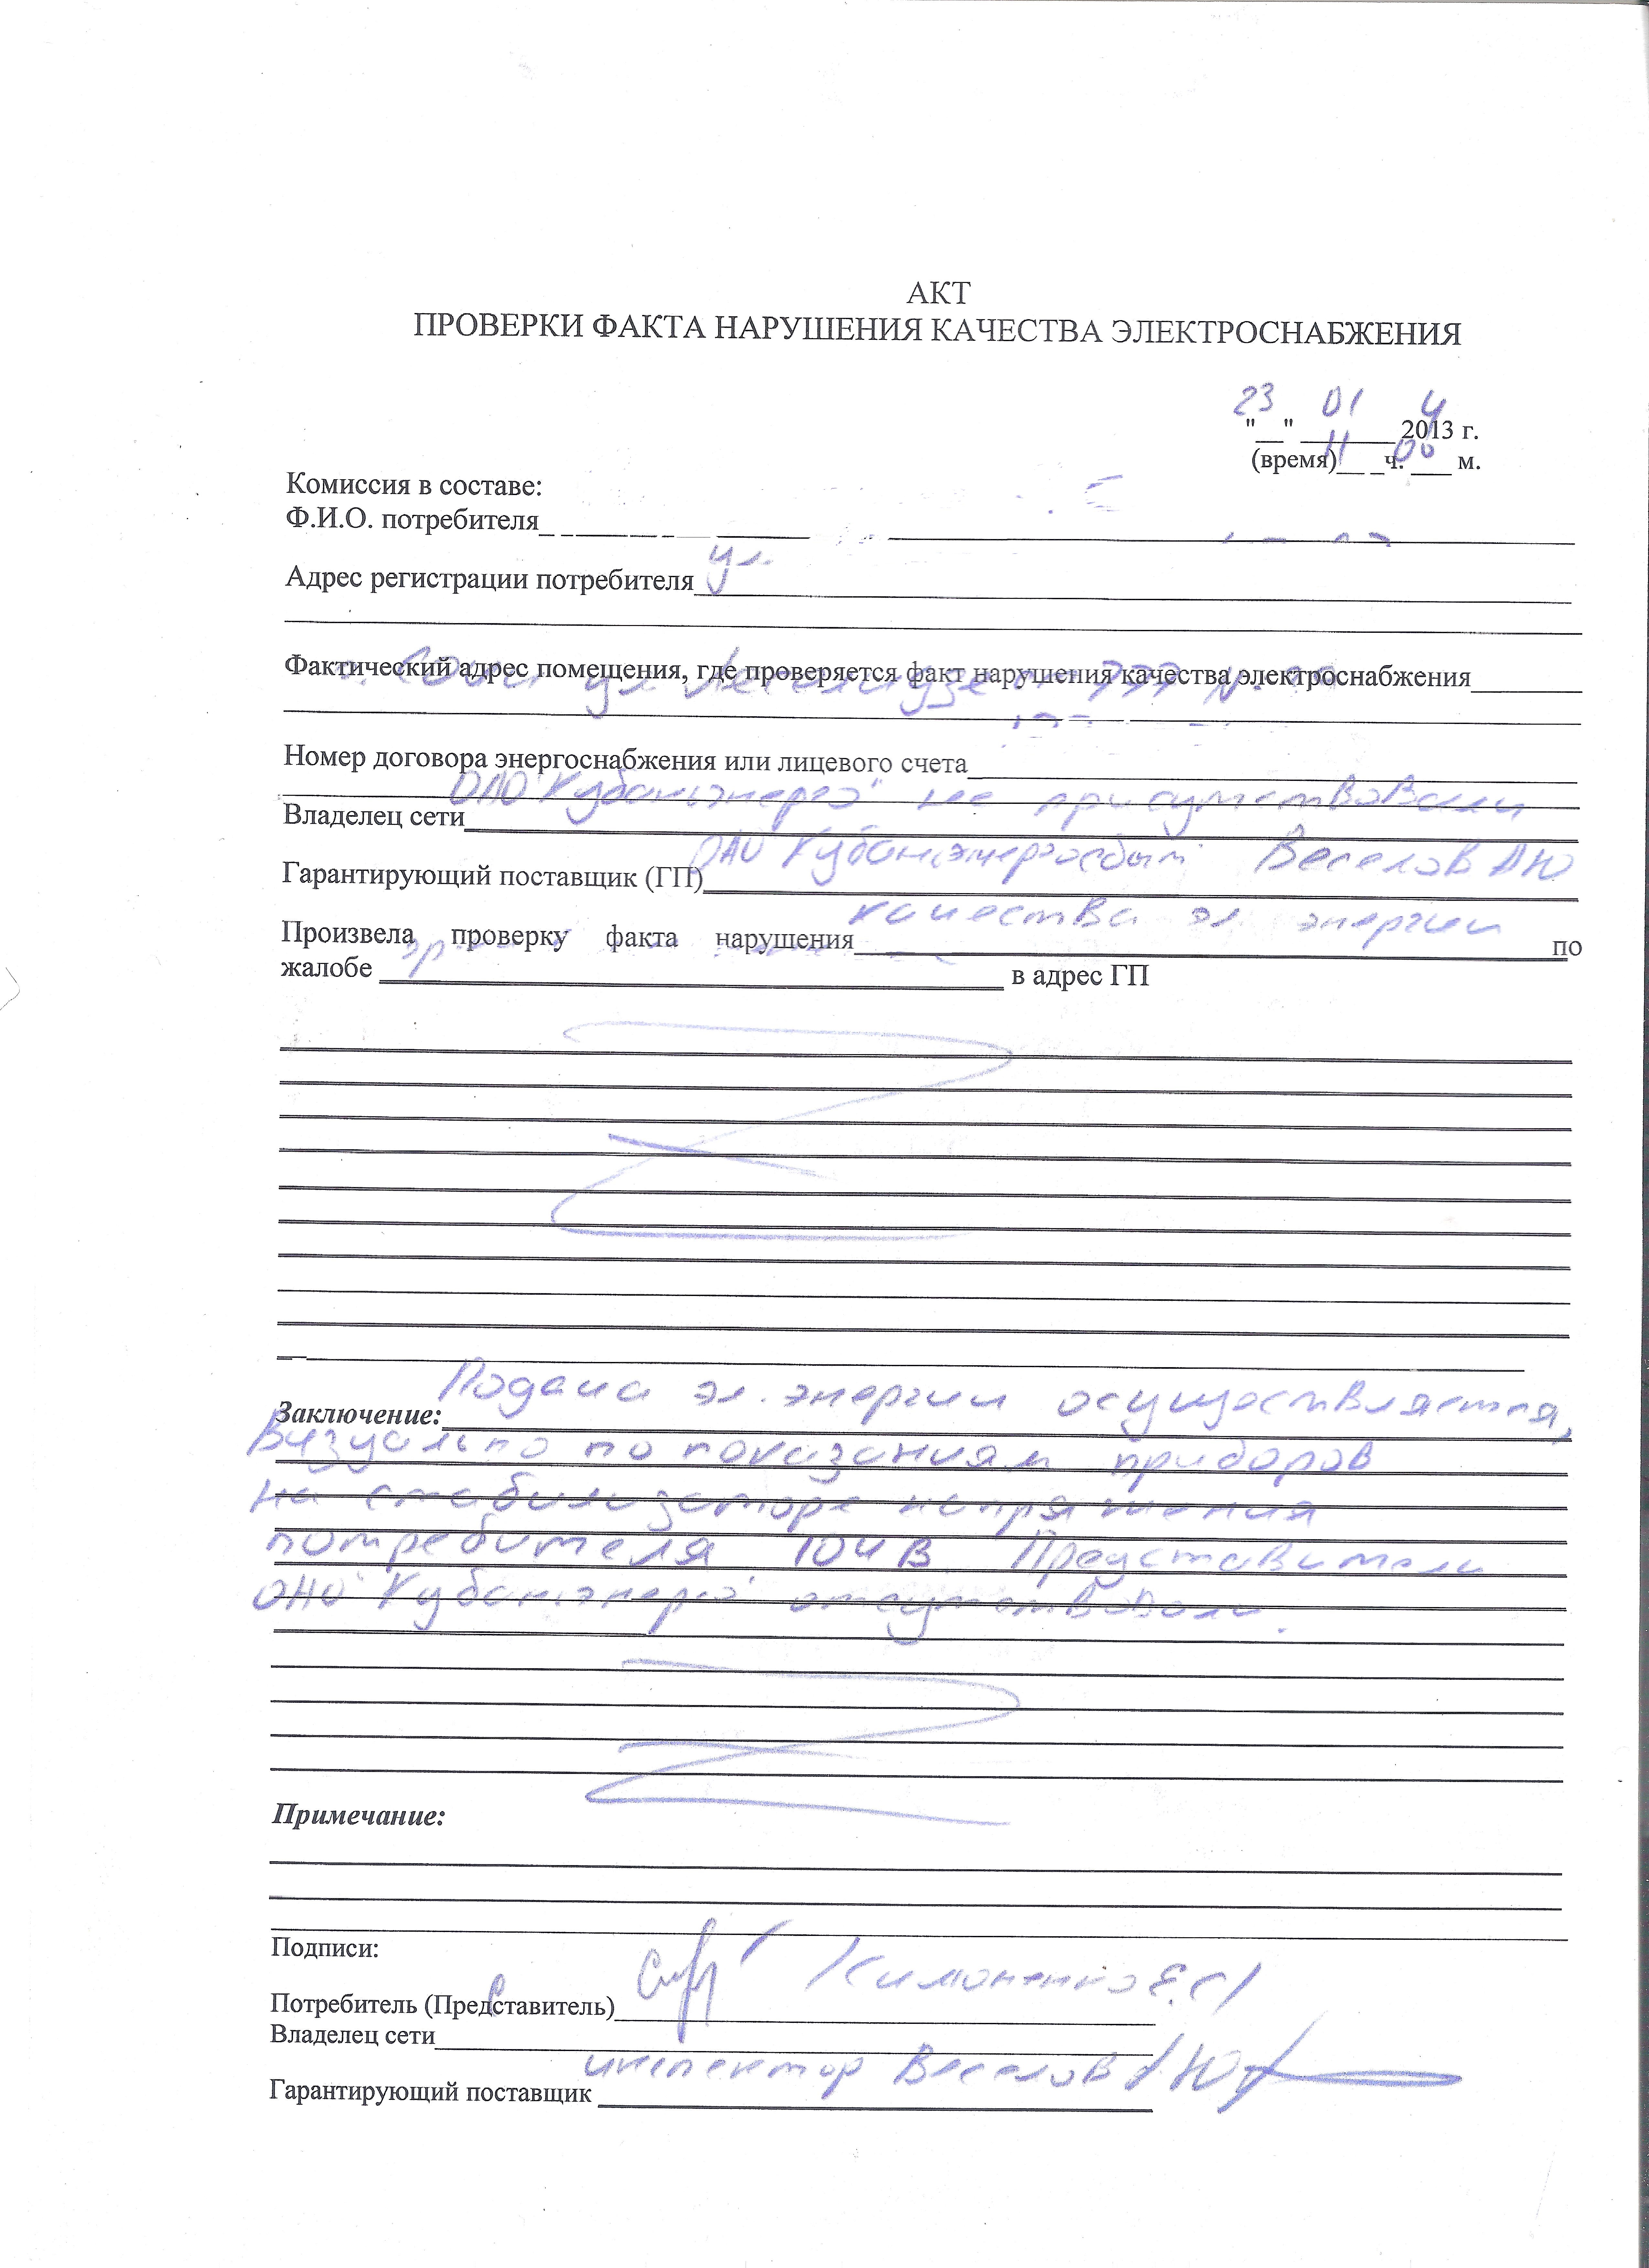 АКТ
ПРОВЕРКИ ФАКТА НАРУШЕНИЯ КАЧЕСТВА ЭЛЕКТРОСНАБЖЕНИЯ
23 01 4
"__" _______ 2013 г.
11 00
(время)__ _ч. ___ м.
Комиссия в составе:
Ф.И.О. потребителя
ул.
Адрес регистрации потребителя
Фактический адрес помещения, где проверяется факт нарушения качества электроснабжения
г. Сочи ул
Номер договора энергоснабжения или лицевого счета
ОАО "Кубаньэнерго" не присутствовали
Владелец сети
ОАО "Кубаньэнергосбыт" Веселов А Ю
Гарантирующий поставщик (ГП)
качества эл. энергии
Произвела проверку факта нарушения по
жалобе в адрес ГП
Подача эл. энергии осуществляется,
Заключение:
Визуально по показаниям приборов
на стабилизаторе напряжения
потребителя 104 В Представители
ОАО "Кубаньэнерго" отсутствовали.
Примечание:
Подписи:
Потребитель (Представитель)
Владелец сети
инспектор Веселов А Ю
Гарантирующий поставщик